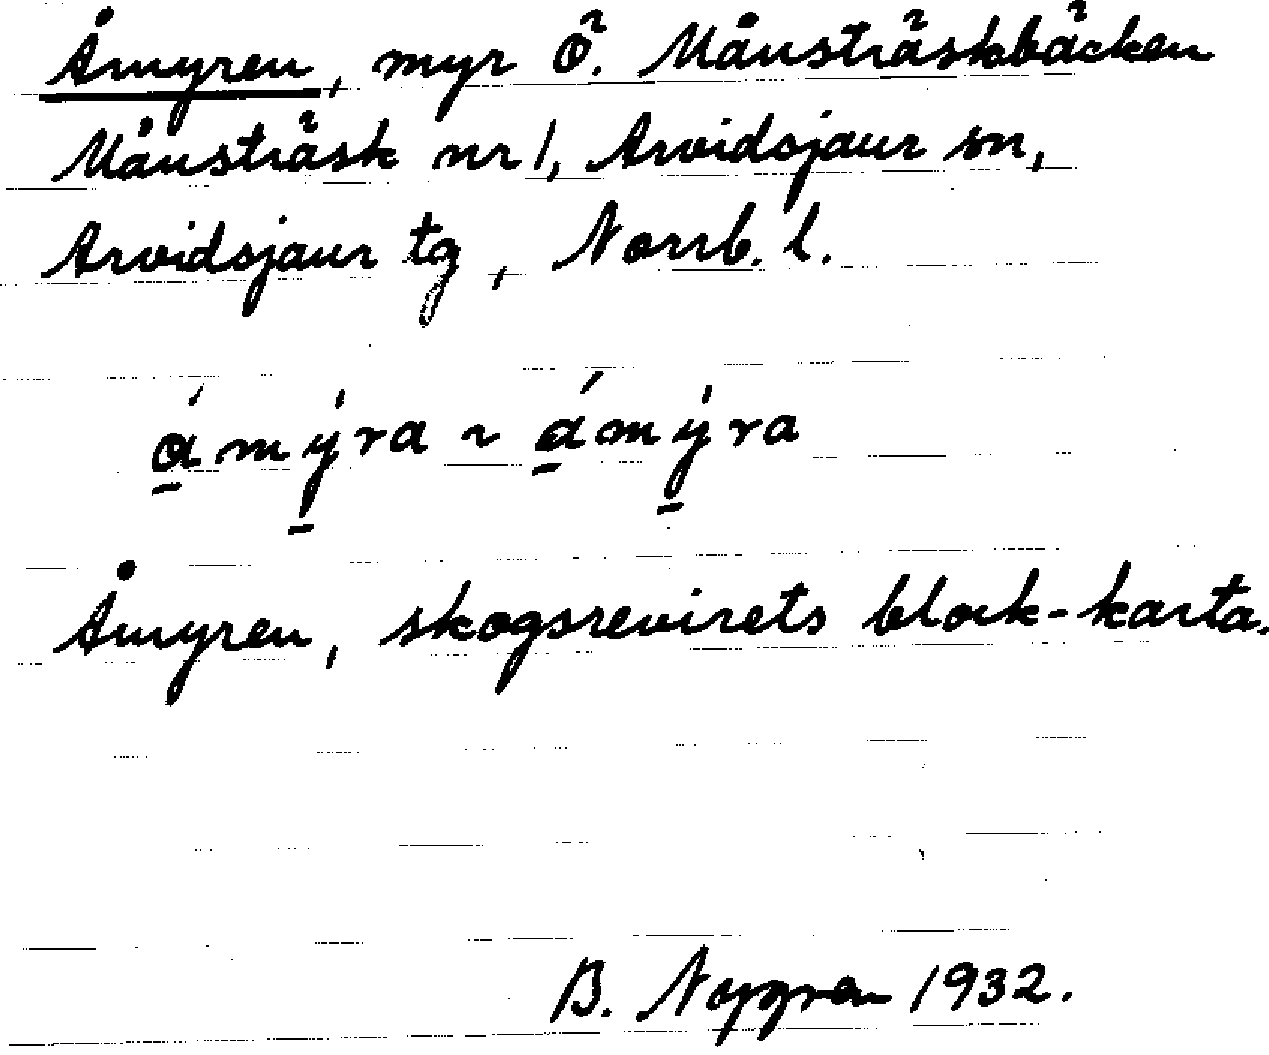 Åmyren, myr Ö. Månsträskbäcken
Månsträsk nr 1, Arvidsjaur sn,
Arvidsjaur tg, Norrb. l.
á̱mý̱ra ~ á̱mý̱ra
Åmyren, skogsrevirets block-karta.
B. Nygren 1932.